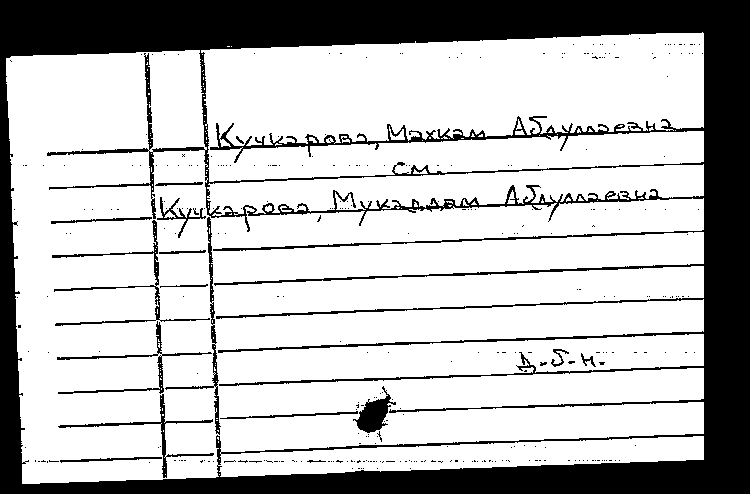 Кучкарова, Махкам Абдуллаевна
см.
Кучкарова, Мукаддам Абдуллаевна
д-б-н.